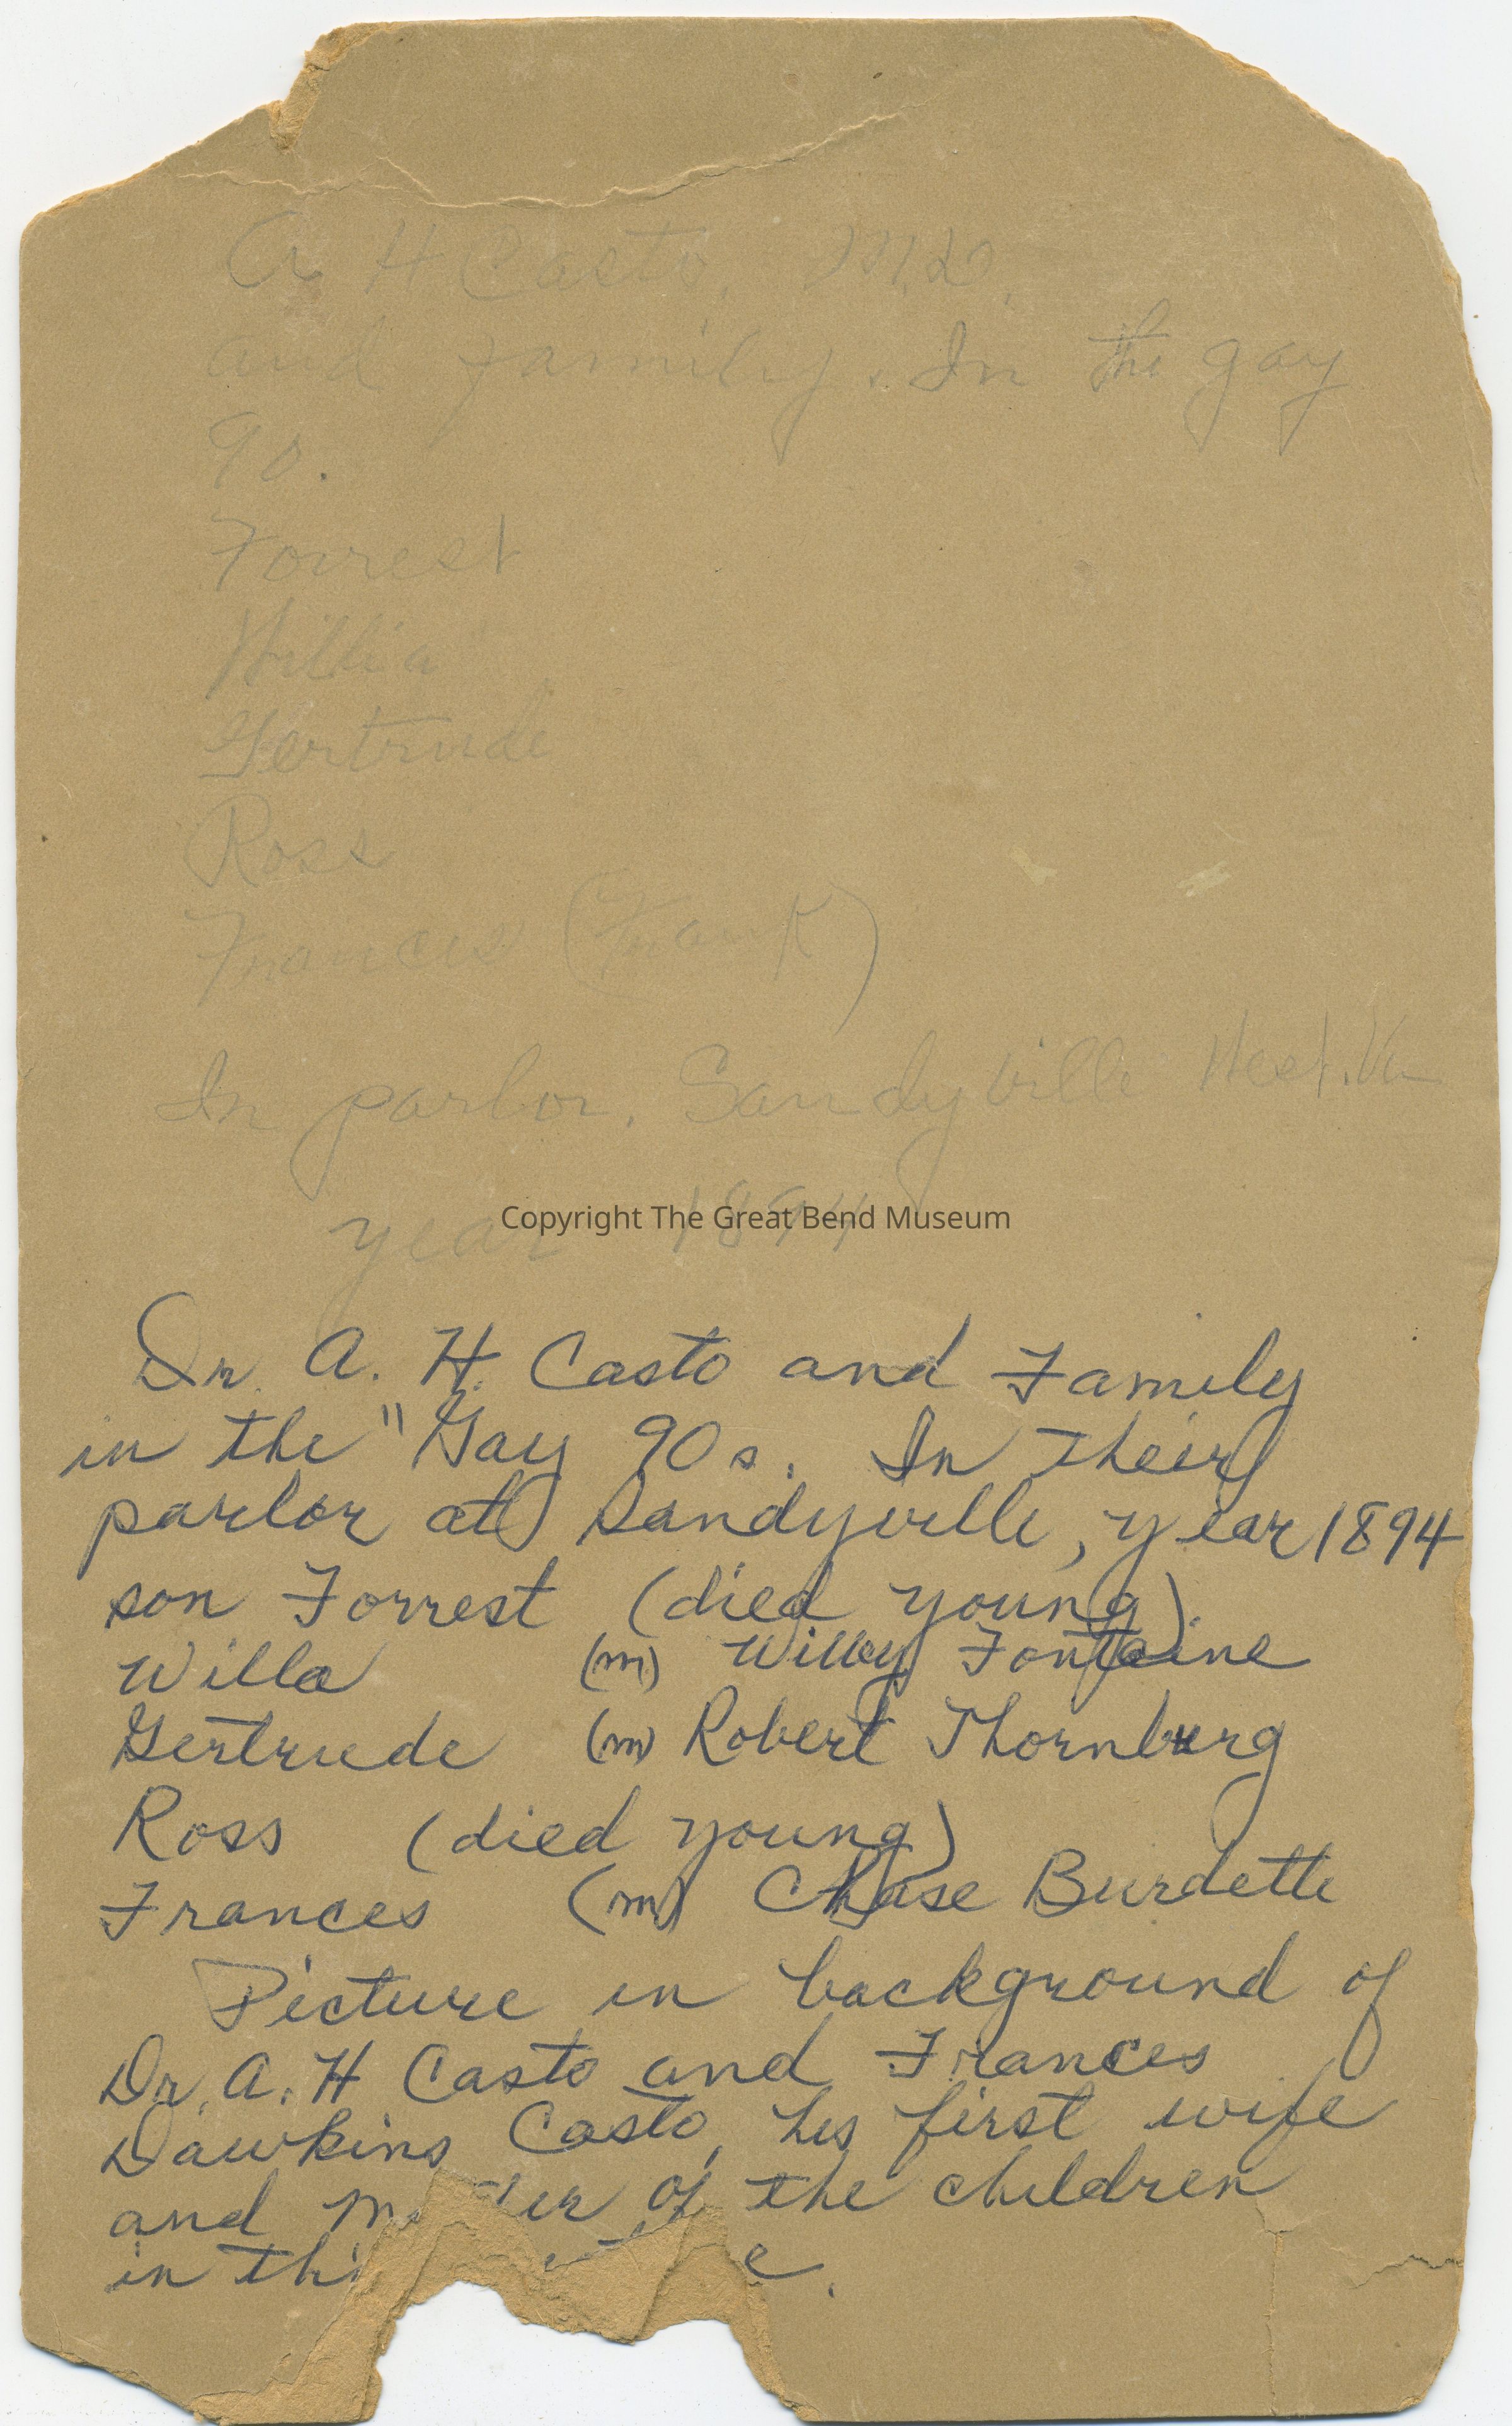 A H Casto, M.D.
and family. In the gay
90.
Forrest
Willia
Gertrude
Ross
Frances (Frank)
In parlor. Sandyville West. Va
year 1894
Copyright The Great Bend Museum
Dr. A. H. Casto and Family
in the "Gay 90s. In their
parlor at Sandyville, year 1894
son Forrest (died young).
Willa (m) Willey Fontaine
Gertrude (m) Robert Thornburg
Ross (died young)
Frances (m) Chase Burdette
Picture in background of
Dr. A. H Casto and Frances
Dawkins Casto, his first wife
and of the children
in